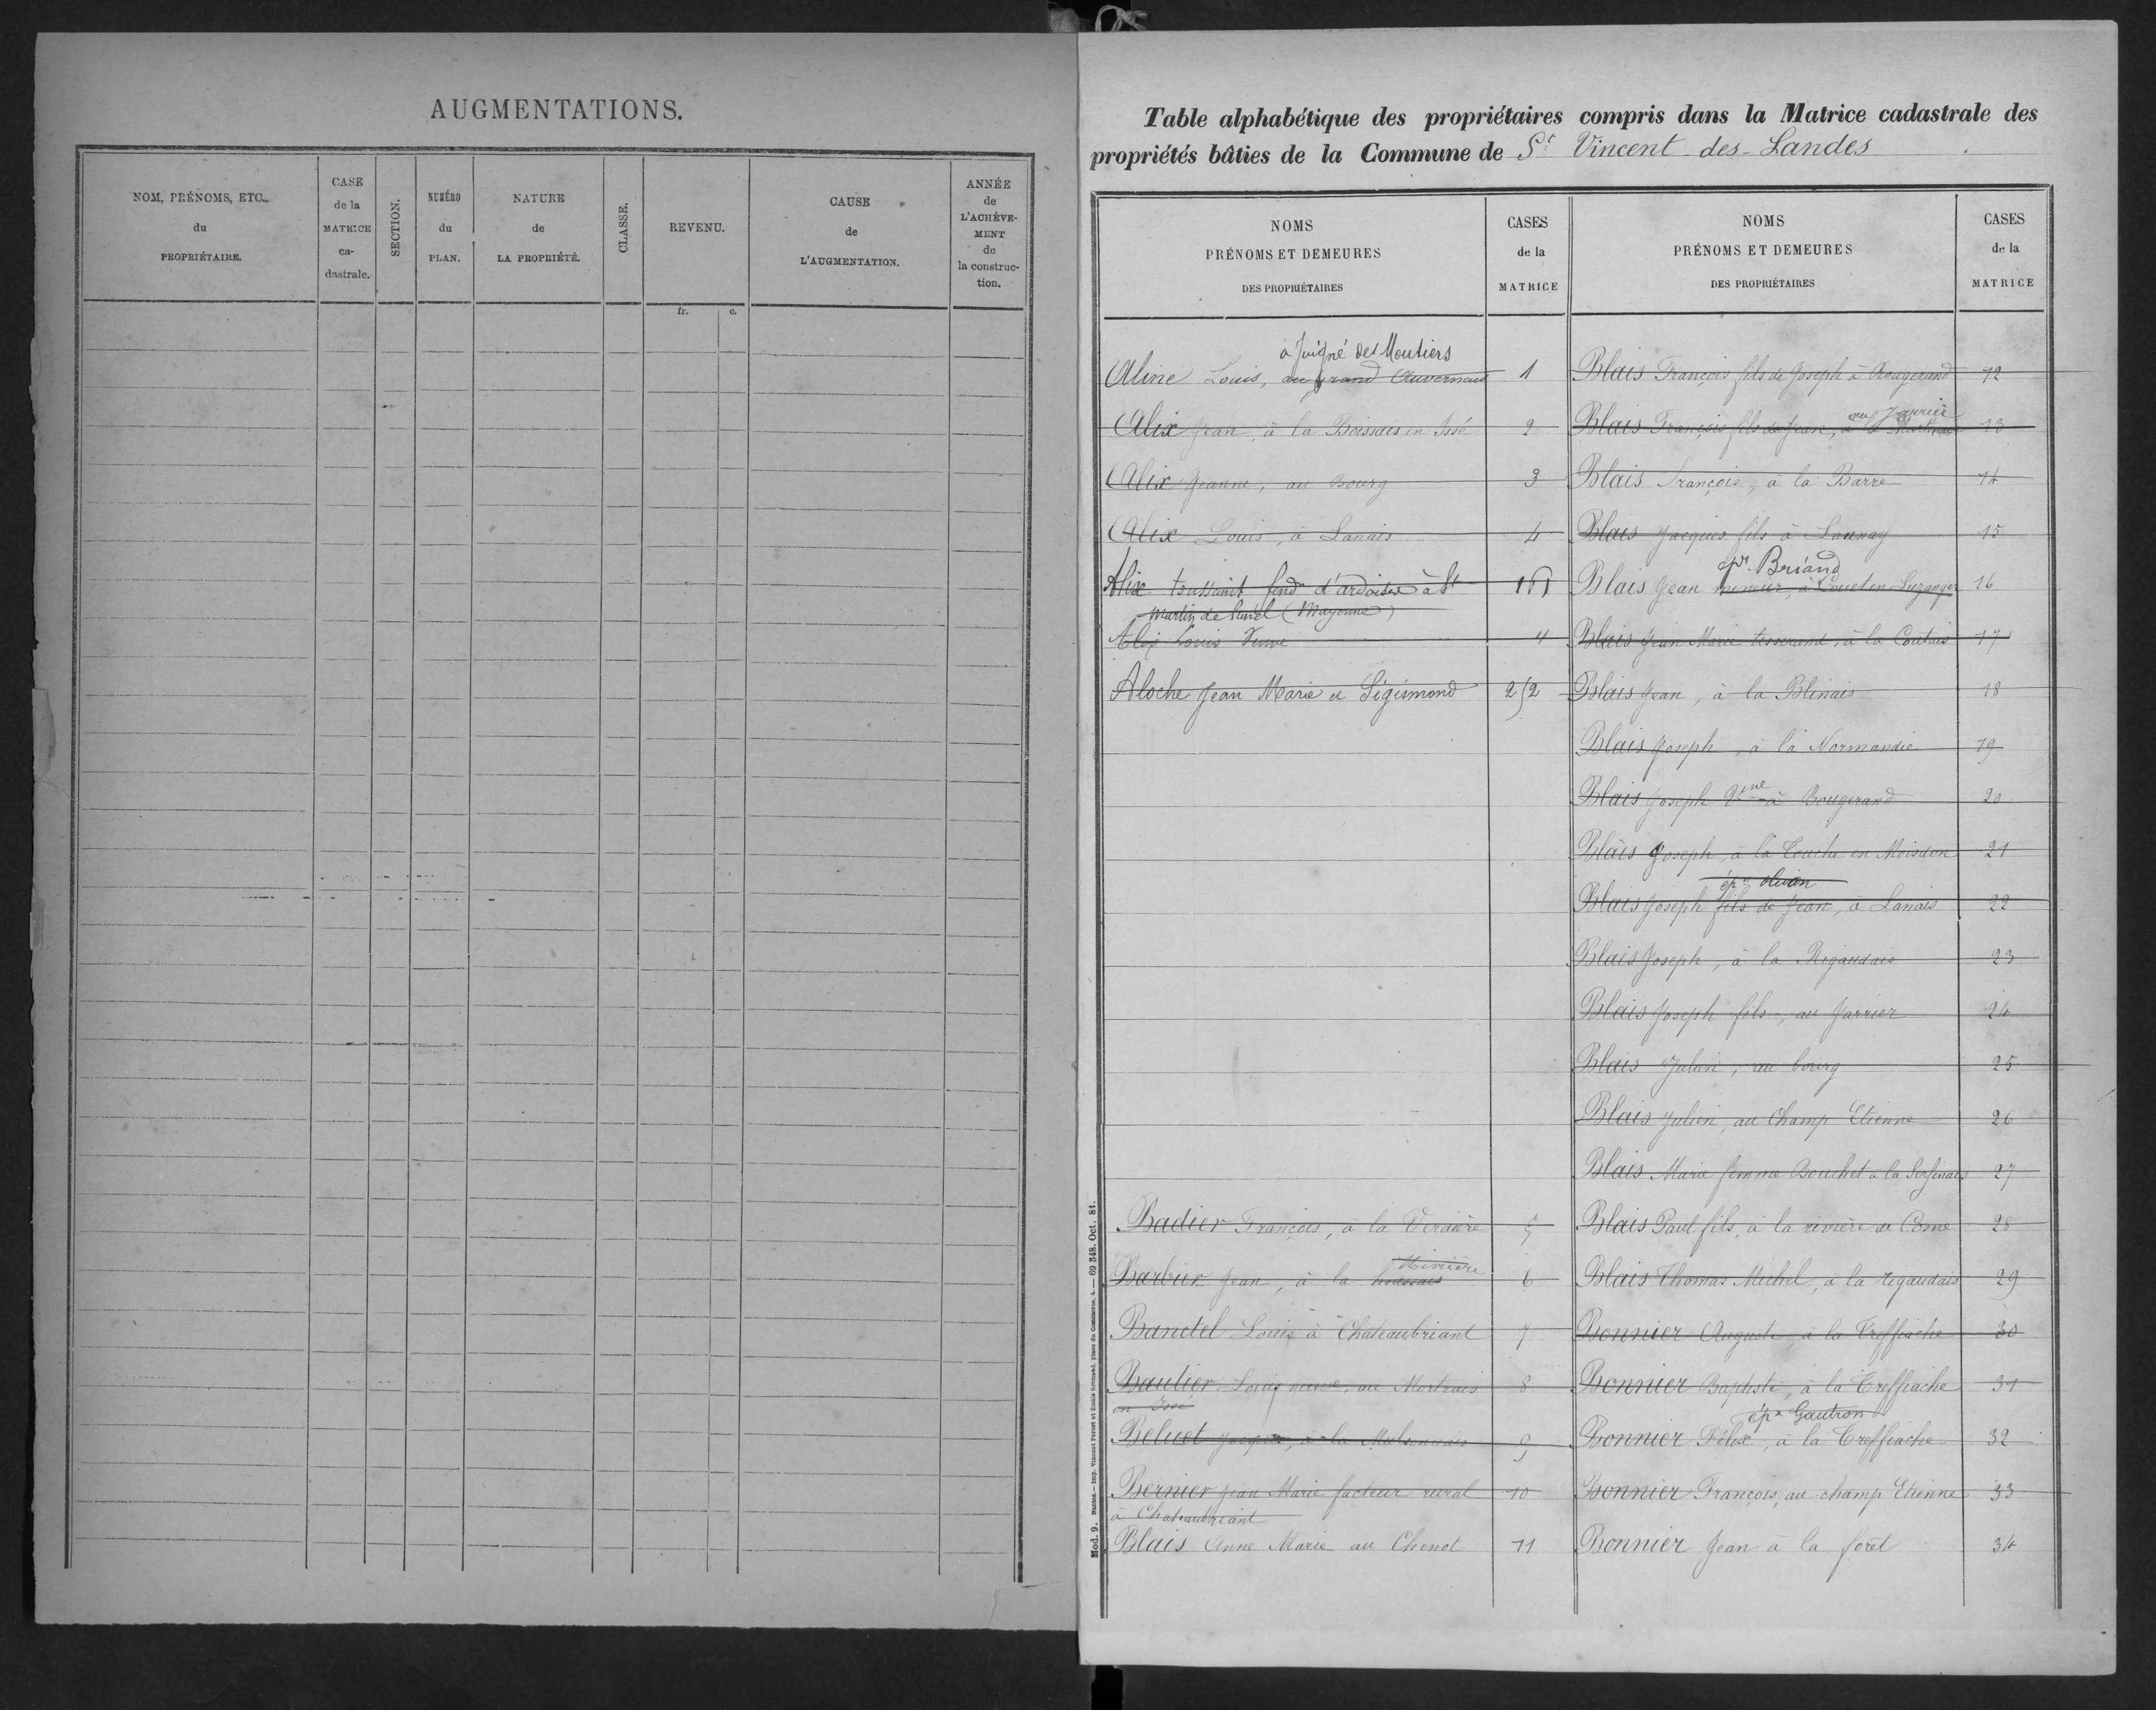 AUGMENTATIONS.
NOM, PRÉNOMS, ETC.
du
PROPRIÉTAIRE.
CASE
de la
MATRICE
ca-
dastrale.
SECTION.
NUMÉRO
du
PLAN.
NATURE
de
LA PROPRIÉTÉ.
CLASSE.
REVENU.
CAUSE
de
L'AUGMENTATION.
ANNÉE
de
L'ACHÈVE-
MENT
de
la construc-
tion.
fr. c.
Table alphabétique des propriétaires compris dans la Matrice cadastrale des
propriétés bâties de la Commune de St Vincent des Landes
NOMS
PRÉNOMS ET DEMEURES
DES PROPRIÉTAIRES
CASES
de la
MATRICE
à Juigné des Moutiers
Aline Louis, au grand Auvernais 1
Alix Jean, à la Boissais en Issé 2
Alix Jeanne, au Bourg 3
Alix Louis, à Lanais 4
Alix toussaint fend d'ardoises à St
Martin de (Mayenne)
Alix Louis Veuve 4
Aloche Jean Marie et Sigismond 252
Badier François, à la Verdière 5
Rivière
Barbier Jean, à la houssais 6
Banctel Louis à Chateaubriant 7
Baulier Louis veuve, au Mortrais 8
en Issé
Beluet Jacques, à la 9
Bernier Jean Marie facteur rural 10
à Chateaubriant
Blais Anne Marie au Chenot 11
NOMS
PRÉNOMS ET DEMEURES
DES PROPRIÉTAIRES
CASES
de la
MATRICE
Blais François fils de Joseph à Rougerand 12
au Jarrier
Blais François fils de Jean, à 13
Blais François, à la Barre 14
Blais Jacques fils à Launay 15
Briand
Blais Jean mineur, à 16
Blais Jean Marie tisserand, à la Coutais 17
Blais Jean, à la Blinais 18
Blais Joseph, à la Normandie 19
Blais Joseph Vve à Bougerand 20
Blais Joseph, à la Touche en Moisdon 21
épx
Blais Joseph fils de Jean, à Lanais 22
Blais Joseph, à la Rigaudais 23
Blais Joseph fils, au Jarrier 24
Blais Julien, au bourg 25
Blais Julien, au Champ Etienne 26
Blais Marie femme Bouchet à la 27
Blais Paul fils, à la rivière de Cosne 28
Blais Thomas Michel, à la rigaudais 29
Bonnier Auguste, à la Treffiache 30
Bonnier Baptiste, à la Treffiache 31
épx Gautron
Bonnier Félix, à la Treffiache 32
Bonnier François, au champ Etienne 33
Bonnier Jean à la forêt 34
Mod. 9. Nantes.— Imp. Vincent Forest et Émile Grimaud, place du Commerce, 4.— 69 348. Oct. 81.